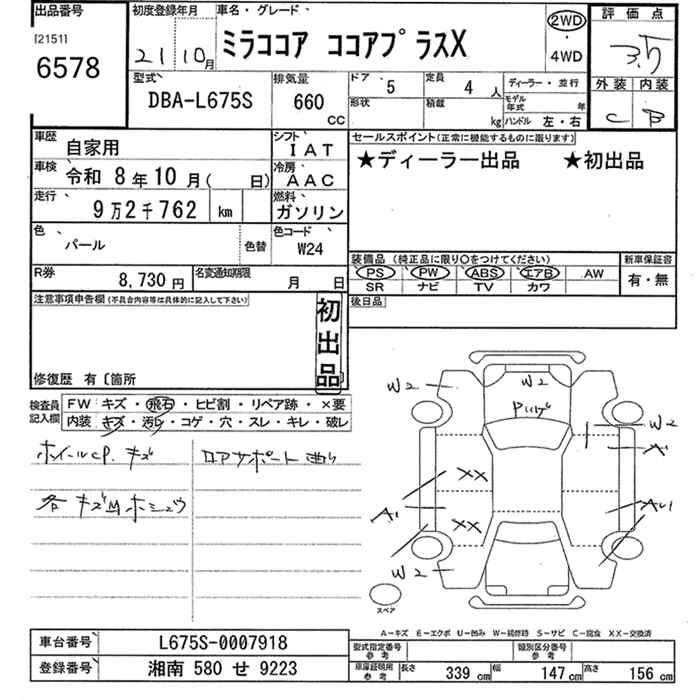 出品番号
[2151]
6578
初度登録年月
21 10月
車名・グレード
ミラココア ココアプラスX
2WD
・
4WD
評価点
3.5
外装 内装
C B
型式
DBA-L675S
排気量
660 CC
ドア 5
形状
定員 4 人
積載 kg
ディーラー・並行
モデル年式 年
ハンドル 左・右
車歴 自家用
シフト IAT
車検 令和 8年 10月( 日)
冷房 AAC
走行 9万2千762 km
燃料 ガソリン
色 パール
色替
色コード W24
R券 8,730円
名変通知期限 月 日
セールスポイント(正常に機能するものに限ります)
★ディーラー出品 ★初出品
装備品 (純正品に限り○をつけてください)
PS PW ABS エアB AW
SR ナビ TV カワ
新車保証書
有・無
後日品
注意事項申告欄(不具合内容等は具体的に記入して下さい)
初出品
修復歴 有〔箇所
検査員記入欄
FW キズ・飛石・ヒビ割・リペア跡・×要
内装 キズ・汚レ・コゲ・穴・スレ・キレ・破レ
ホイールCP. キズ
ロアサポート曲り
各キズ凹ホシュウ
W2
W2
W2
A1
XX
XX
A1
W2
スペア
A-キズ E-エクボ U-凹み W-補修跡 S-サビ C-腐食 XX-交換済
車台番号 L675S-0007918
登録番号 湘南 580 せ 9223
型式指定番号 参考
類別区分番号 参考
車庫証明用 参考
長さ 339 cm 幅 147 cm 高さ 156 cm